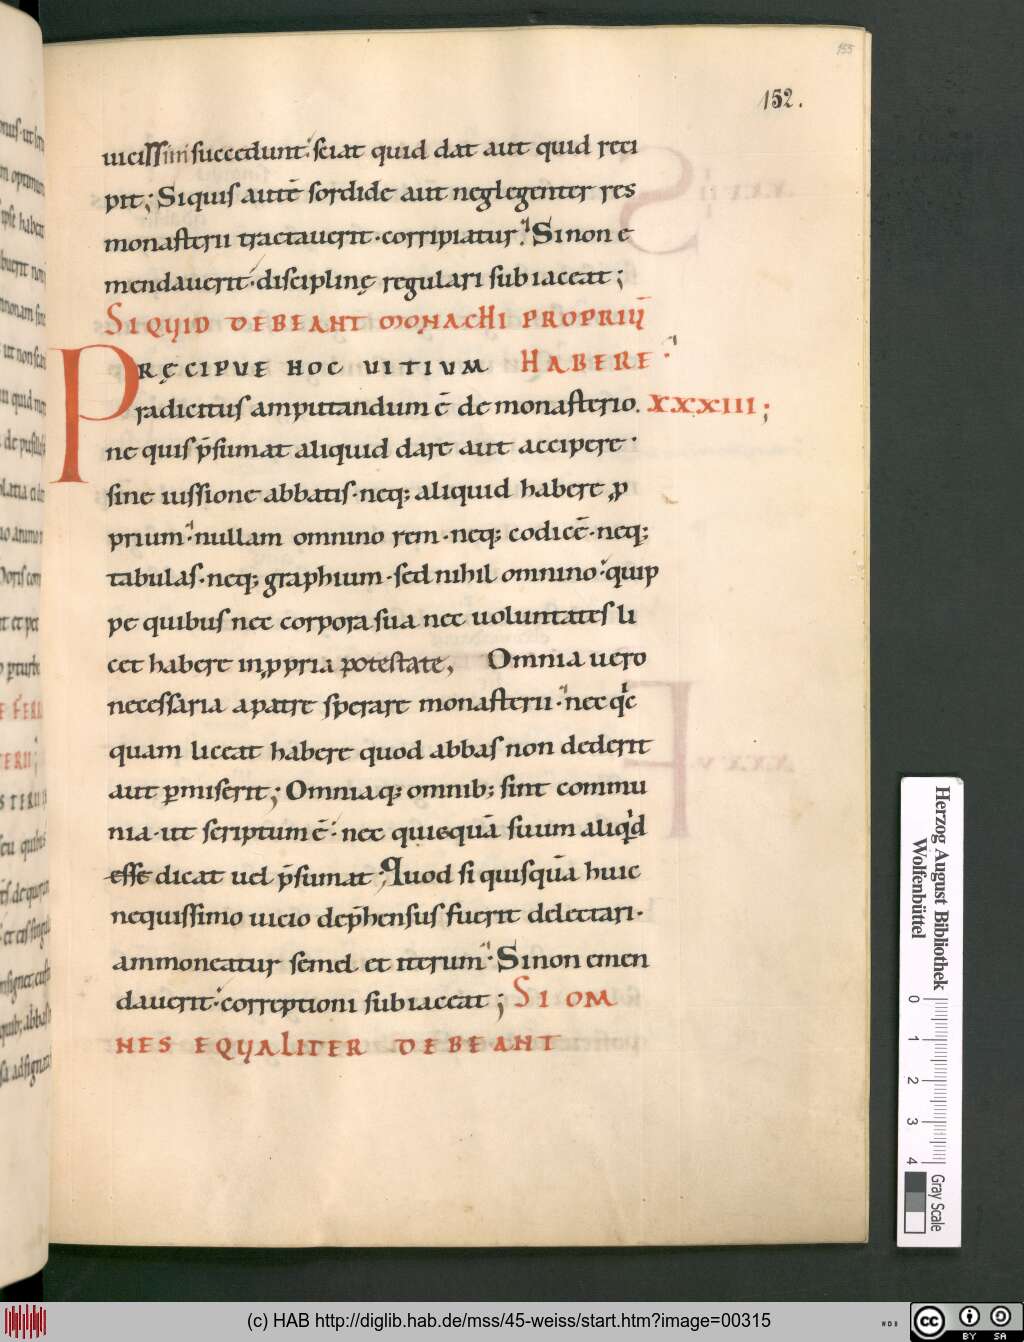 155
152.
uicissim succedunt. sciat quid dat aut quid reci
pit; Siquis autē sordide aut neglegenter res
monasterii tractauerit·corripiatur. Sinon e
mendauerit·disciplinę regulari subiaceat;
SI QUID DEBEANT MONACHI PROPRIŪ
PRĘCIPUE HOC UITIUM HABERE·
radicitus amputandum ē de monasterio. XXXIII;
ne quis p̄sumat aliquid dare aut accipere·
sine iussione abbatis·neq; aliquid habere ꝓ
prium·nullam omnino rem·neq; codicē·neq;
tabulas·neq; graphium·sed nihil omnino·quip
pe quibus nec corpora sua nec uoluntates li
cet habere inꝓpria potestate, Omnia uero
necessaria apatre sperare monasterii·nec qͥc
quam liceat habere quod abbas non dederit
aut ꝑmiserit; Omniaq; omnib; sint commu
nia·ut scriptum ē·nec quisquā suum aliqͥd
esse dicat uel p̄sumat; Quod si quisquā huic
nequissimo uicio dep̄hensus fuerit delectari·
ammoneatur semel et iterum· Sinon emen
dauerit·correptioni subiaceat; SI OM
NES EQUALITER DEBEANT
Herzog August Bibliothek
Wolfenbüttel
0 1 2 3 4
Gray Scale
(c) HAB http://diglib.hab.de/mss/45-weiss/start.htm?image=00315
cc BY SA